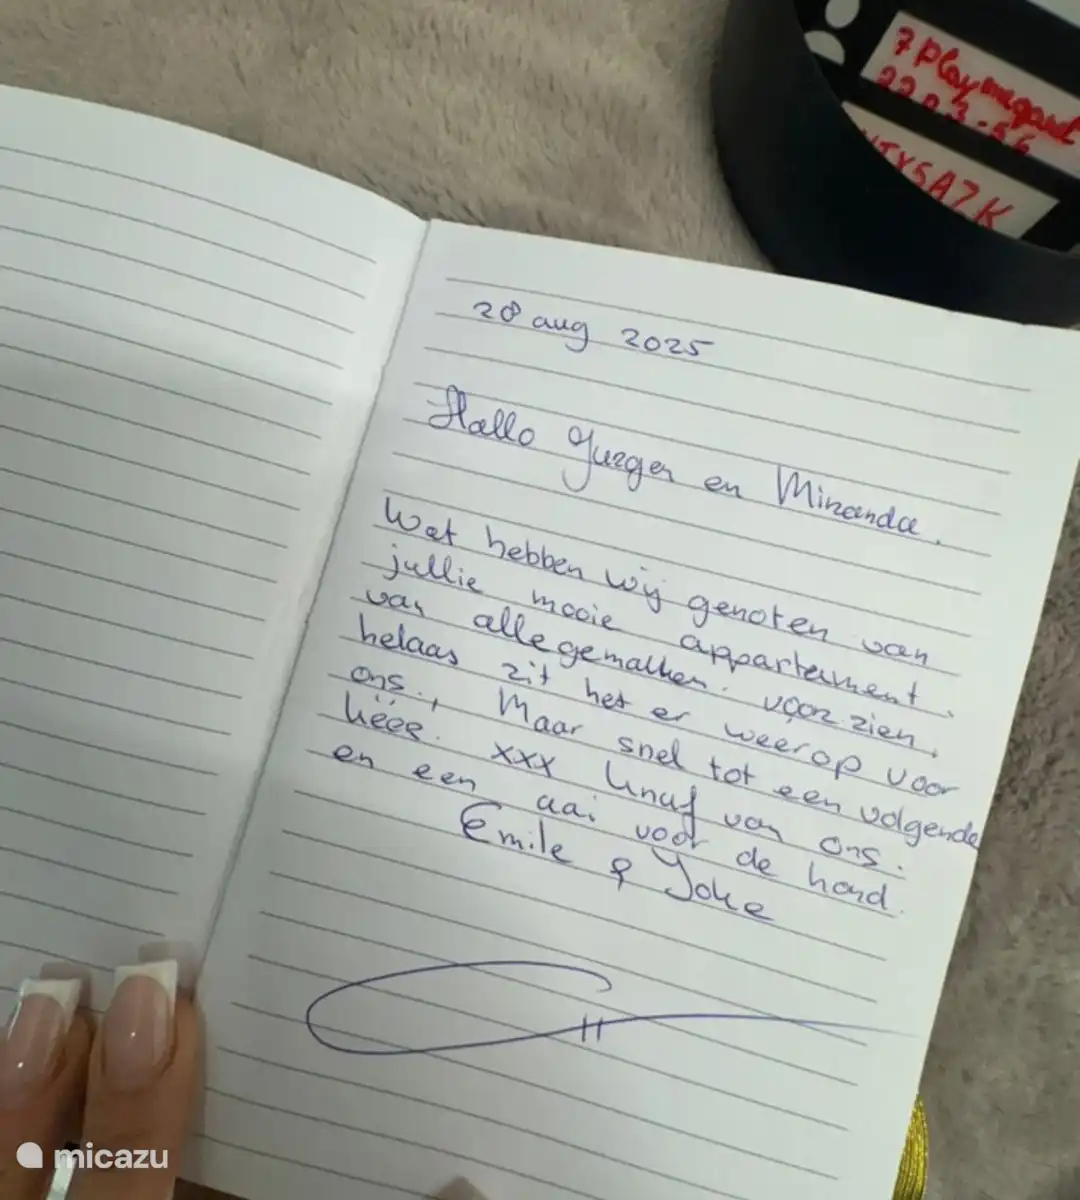 7 Playmegaut
22 03-66
NTXSA7K
28 aug 2025
Hallo Jurger en Miranda.
Wat hebben wij genoten van
jullie mooie appartement.
van alle gemakken. voorzien.
helaas zit het er weer op voor
ons., Maar snel tot een volgende
kéér. xxx knuf van ons.
en een aai voor de hond.
Emile & Joke
micazu